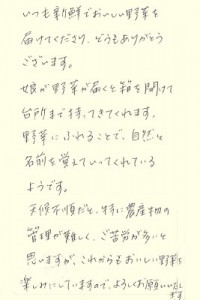 いつも新鮮でおいしい野菜を
届けてくださり、どうもありがとう
ございます。
娘が野菜が届くと箱を開けて
台所まで持ってきてくれます。
野菜にふれることで、自然と
名前を覚えていってくれている
ようです。
天候不順だと、特に農産物の
管理が難しく、ご苦労が多いと
思いますが、これからもおいしい野菜を
楽しみにしていますので、よろしくお願いいたし
ます